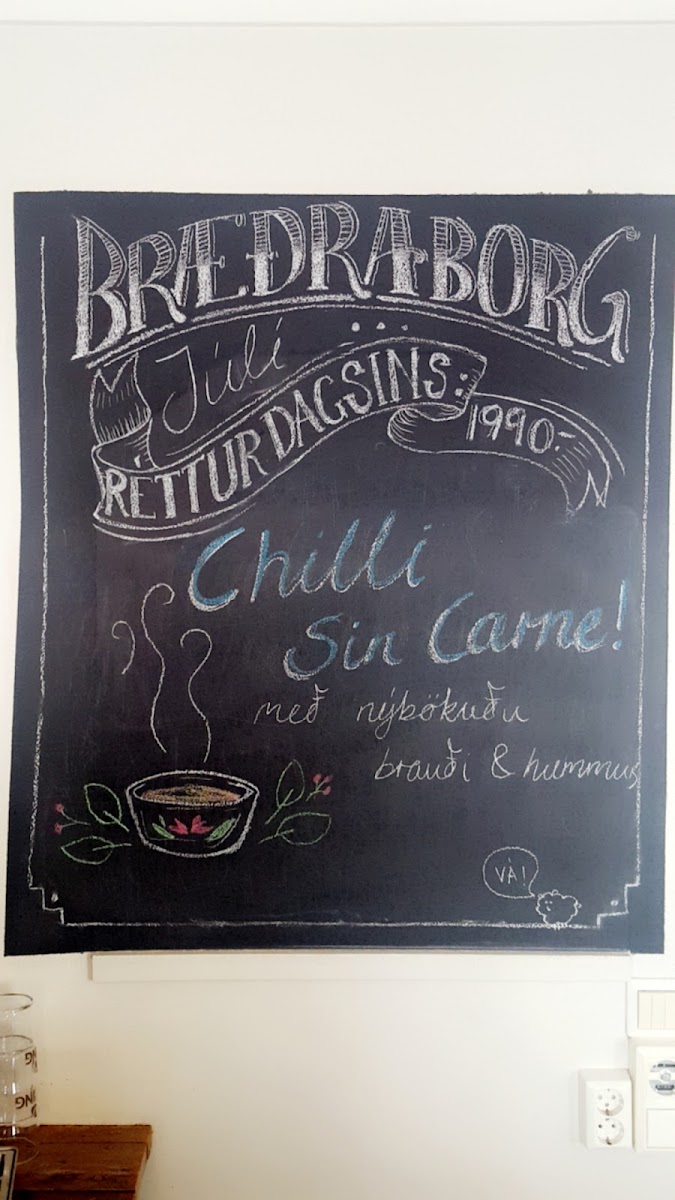 BRÆDRABORG
Júlí ...
RÉTTUR DAGSINS: 1990.-
Chilli
Sin Carne!
með nýbökuðu
brauði & hummus
VÁ!